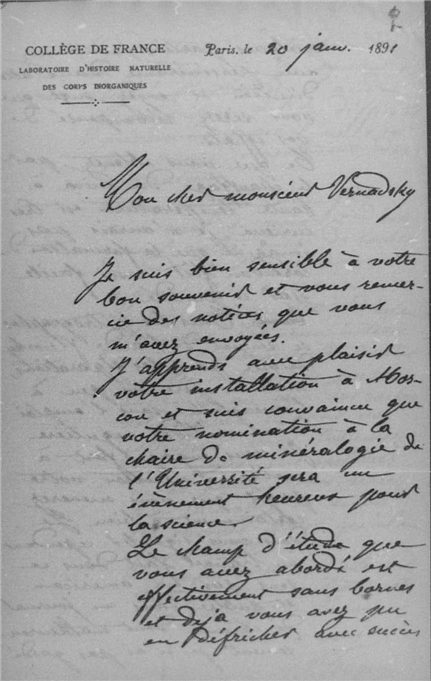 COLLÈGE DE FRANCE
LABORATOIRE D'HISTOIRE NATURELLE
DES CORPS INORGANIQUES
Paris, le 20 janv. 1891
Mon cher monsieur Vernadsky
Je suis bien sensible à votre
bon souvenir et vous remer-
cie des notices que vous
m'avez envoyées.
J'apprends avec plaisir
votre installation à Mos-
cou et suis convaincu que
votre nomination à la
chaire de minéralogie de
l'Université sera un
évènement heureux pour
la science.
Le champ d'étude que
vous avez abordé est
effectivement sans bornes
et déjà vous avez pu
en défricher avec succès